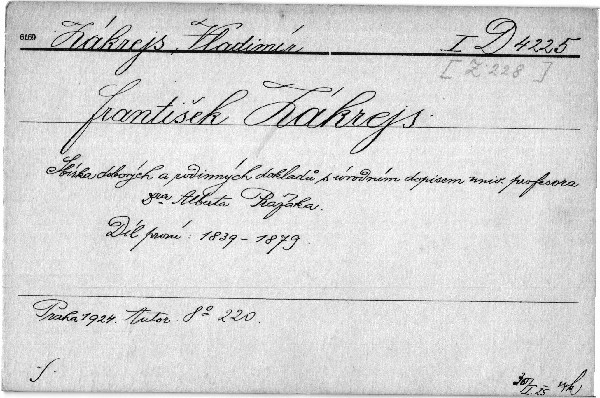 6169 Zákrejs, Vladimír I D 4225
[Z 228]
František Zákrejs.
Sbírka dobových a rodinných dokladů s úvodním dopisem univ. profesora
dra Alberta Pražáka.
Díl první: 1839-1879.
Praha 1924. Autor. 8° 220.